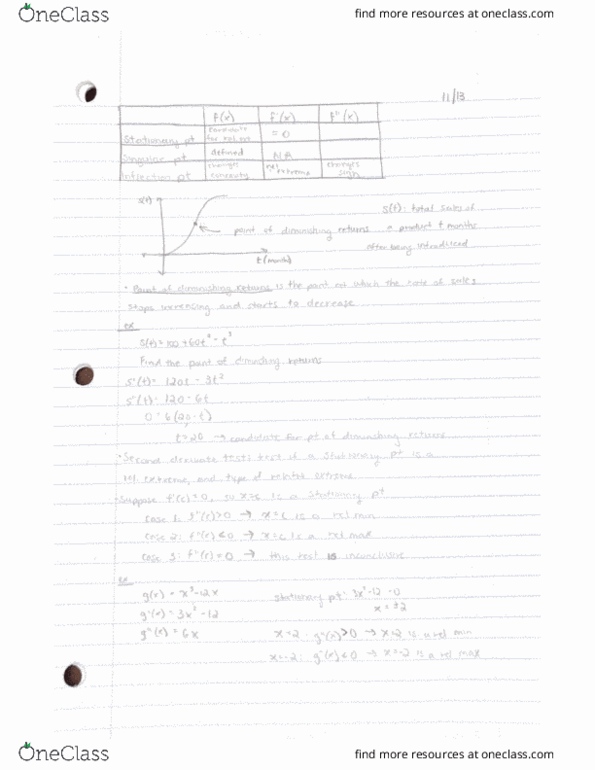 OneClass
find more resources at oneclass.com
11/13
f(x) f'(x) f"(x)
Stationary pt candidate for rel ext = 0
Singular pt defined NA
Inflection pt changes concavity rel extrema changes sign
s(t)
point of diminishing returns
t (month)
s(t): total sales of
a product t months
after being introduced
• Point of diminishing returns is the point at which the rate of sales
stops increasing and starts to decrease
ex
s(t) = 100 + 60t² - t³
Find the point of diminishing returns
s'(t) = 120t - 3t²
s"(t) = 120 - 6t
0 = 6(20-t)
t=20 → candidate for pt of diminishing returns
• Second derivate test: test if a stationary pt is a
rel extreme, and type of relative extreme
• Suppose f'(c) = 0, so x=c is a stationary pt
case 1: f"(c) > 0 → x=c is a rel min
case 2: f"(c) < 0 → x=c is a rel max
case 3: f"(c) = 0 → this test is inconclusive
ex
g(x) = x³-12x
g'(x) = 3x² - 12
g"(x) = 6x
stationary pt: 3x²-12=0
x = ±2
x=2: g"(x) > 0 → x=2 is a rel min
x=-2: g"(x) < 0 → x=-2 is a rel max
OneClass
find more resources at oneclass.com